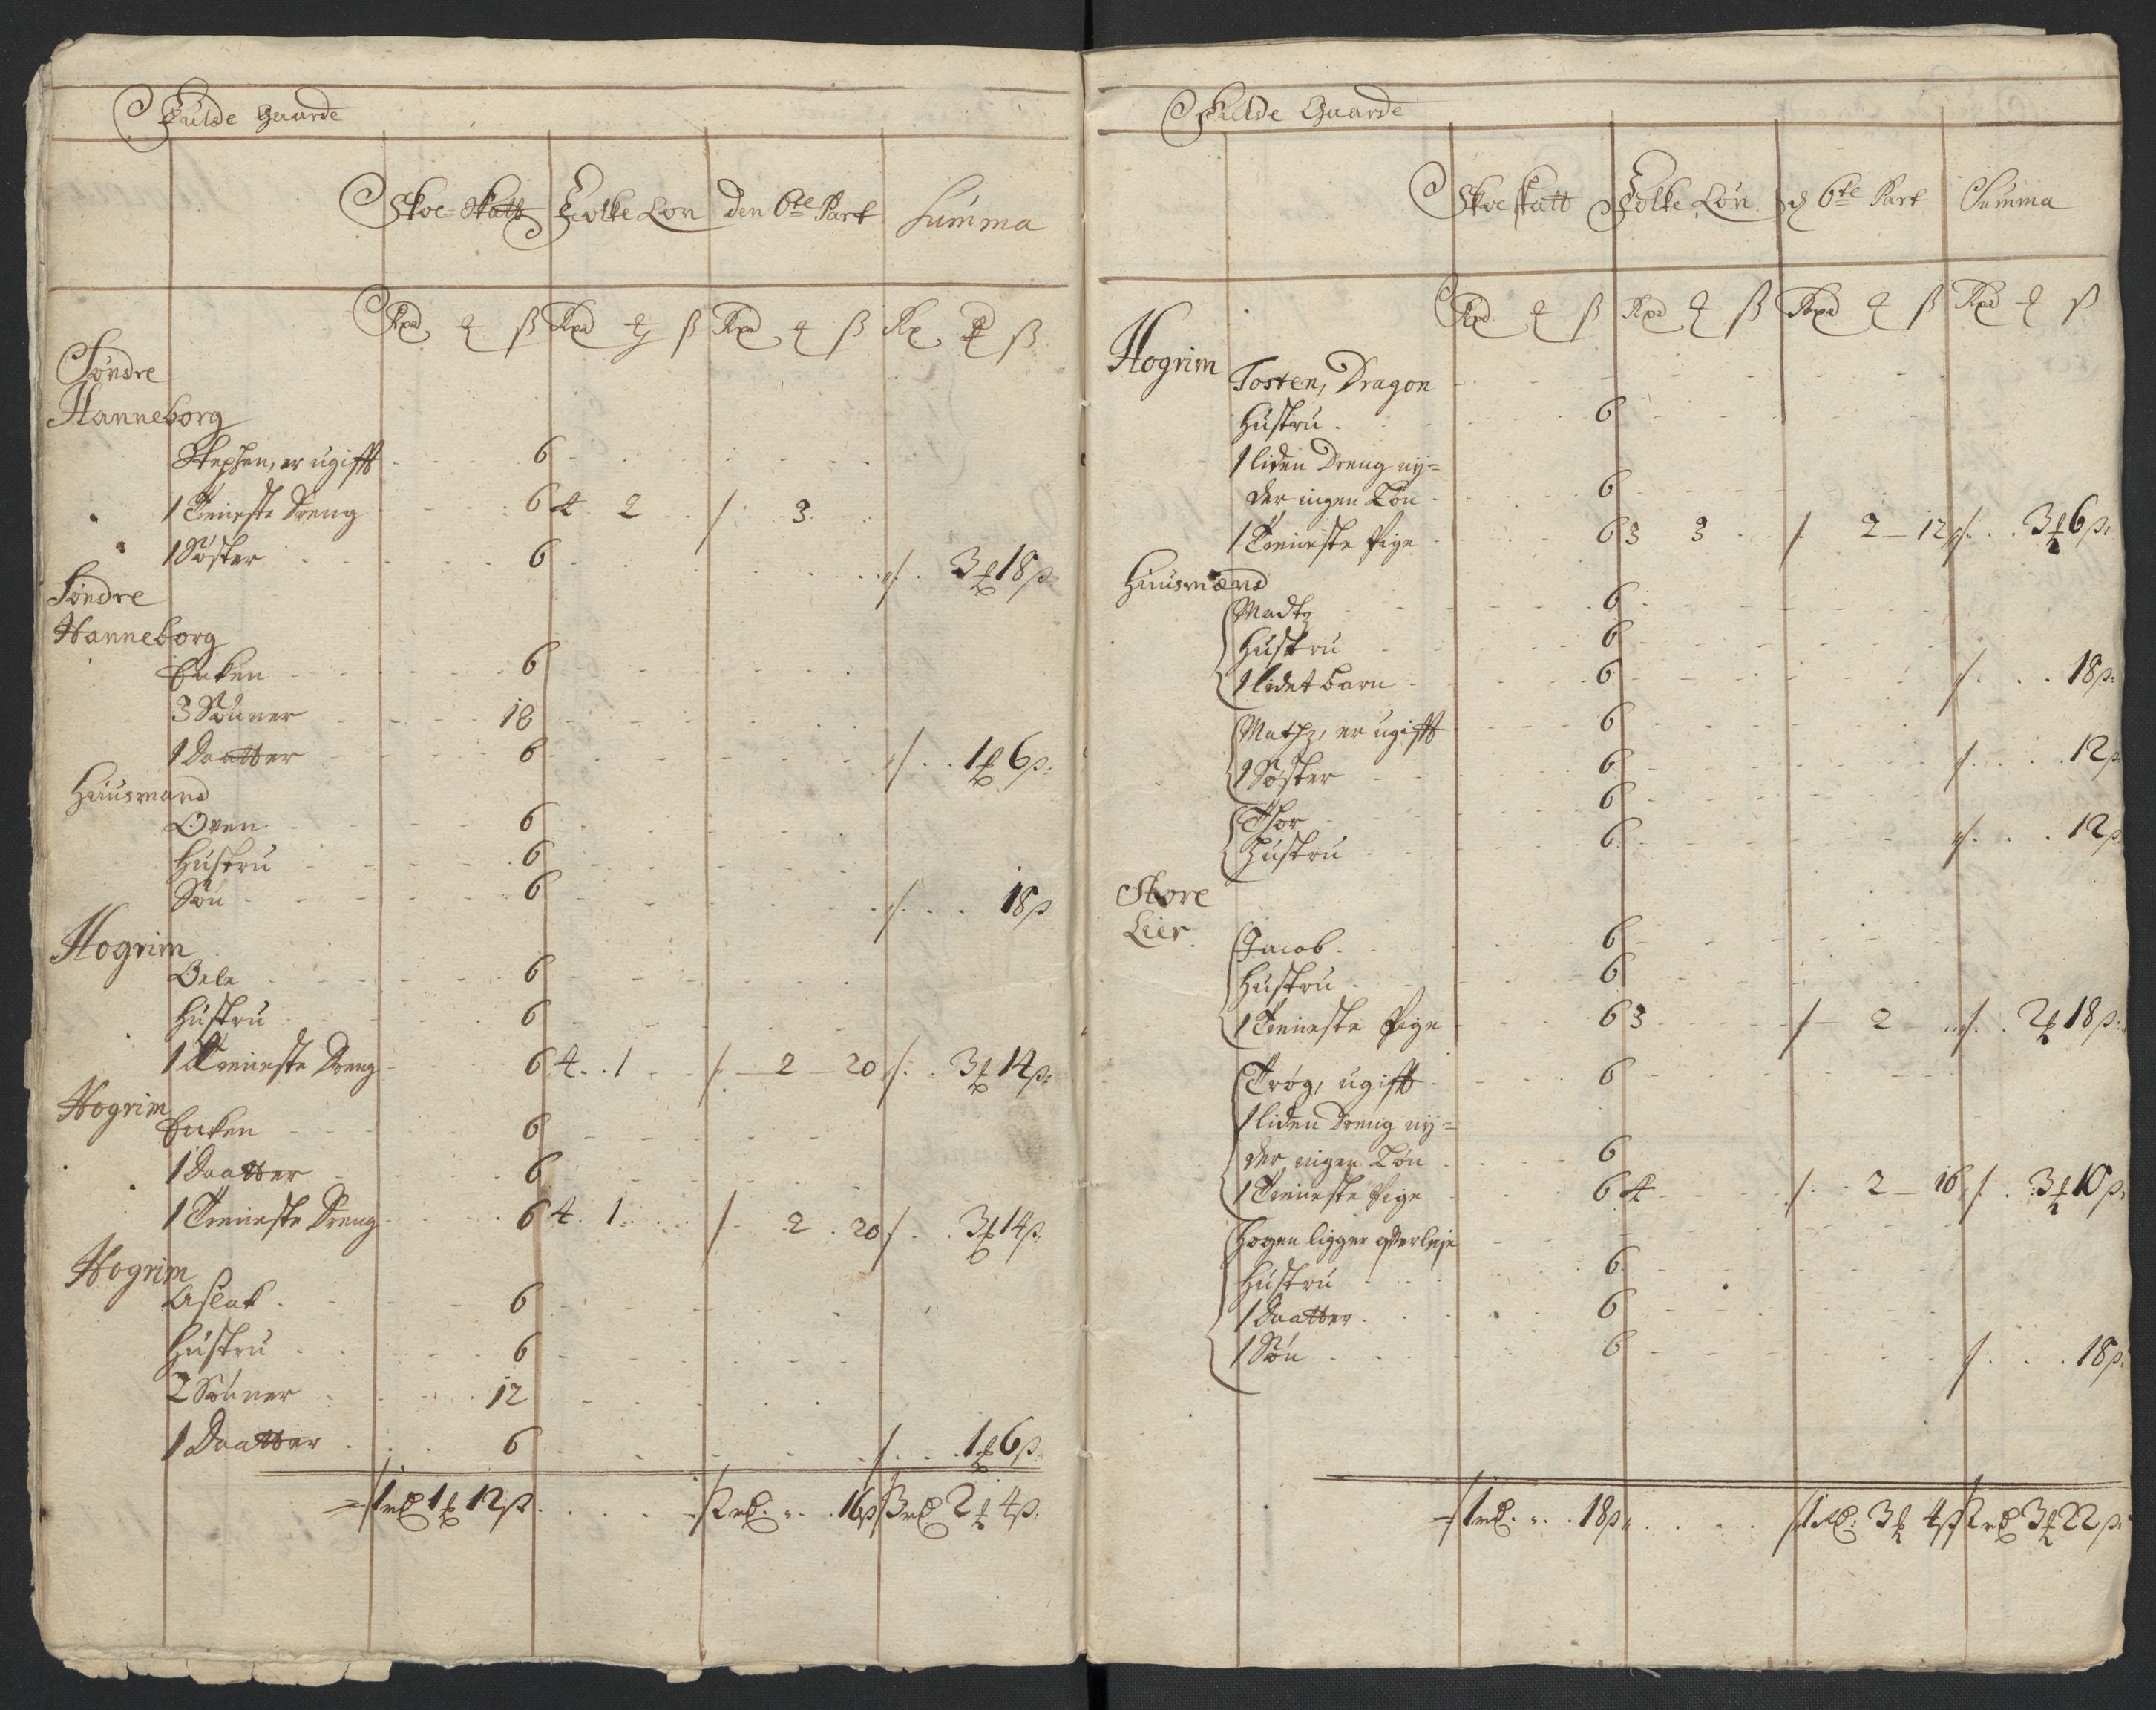 Fulde Gaarde
Skoe-Skatt Folke Lon den 6te Part Summa
Rxd ß Rxd ß Rxd ß Rx ß
Søndre
Hanneborg
Stephen, er ugifft 6
1 Tieniste Dreng 6 4 2 3
1 Søster 6 3 18 ß
Søndre
Hanneborg
Enken 6
3 Sønner 18
1 Daatter 6 1 6 ß
Huusmand
Oven 6
Hustru 6
Søn 6 18 ß
Hogrim
Oele 6
Hustru 6
1 Tieneste Dreng 6 4 1 2 20 3 14 ß
Hogrim
Enken 6
1 Daatter 6
1 Tieneste Dreng 6 4 1 2 20 3 14 ß
Hogrim
Aslak 6
Hustru 6
2 Sønner 12
1 Daatter 6 1 6 ß
1 rd 1 12 ß 2 rd 16 ß 3 rd 2 4 ß
Fulde Gaarde
Skoe skatt Folke Løn d 6te Part Summa
Rxd ß Rxd ß Rxd ß Rxd ß
Hogrim
Tosten, Dragon
Hustru 6
1 liden Dreng ny=
der ingen Løn 6
1 Tieneste Pige 6 3 3 2 12 3 6 ß
Huusmænd
Madtz 6
Hustru 6
1 lidet barn 6 18 ß
Mathz, er ugifft 6
1 Søster 6 12 ß
Thor 6
Hustru 6 12 ß
Store
Lier
Jacob 6
Hustru 6
1 Tieneste Pige 6 3 2 2 18 ß
Trøg, ugifft 6
1 liden Dreng ny=
der ingen Løn 6
1 Tieneste Pige 6 4 2 16 3 10 ß
Hogen ligger
Hustru 6
1 Daatter 6
1 Søn 6 18 ß
1 rd 18 ß 1 Rd 3 4 ß 2 rd 3 22 ß